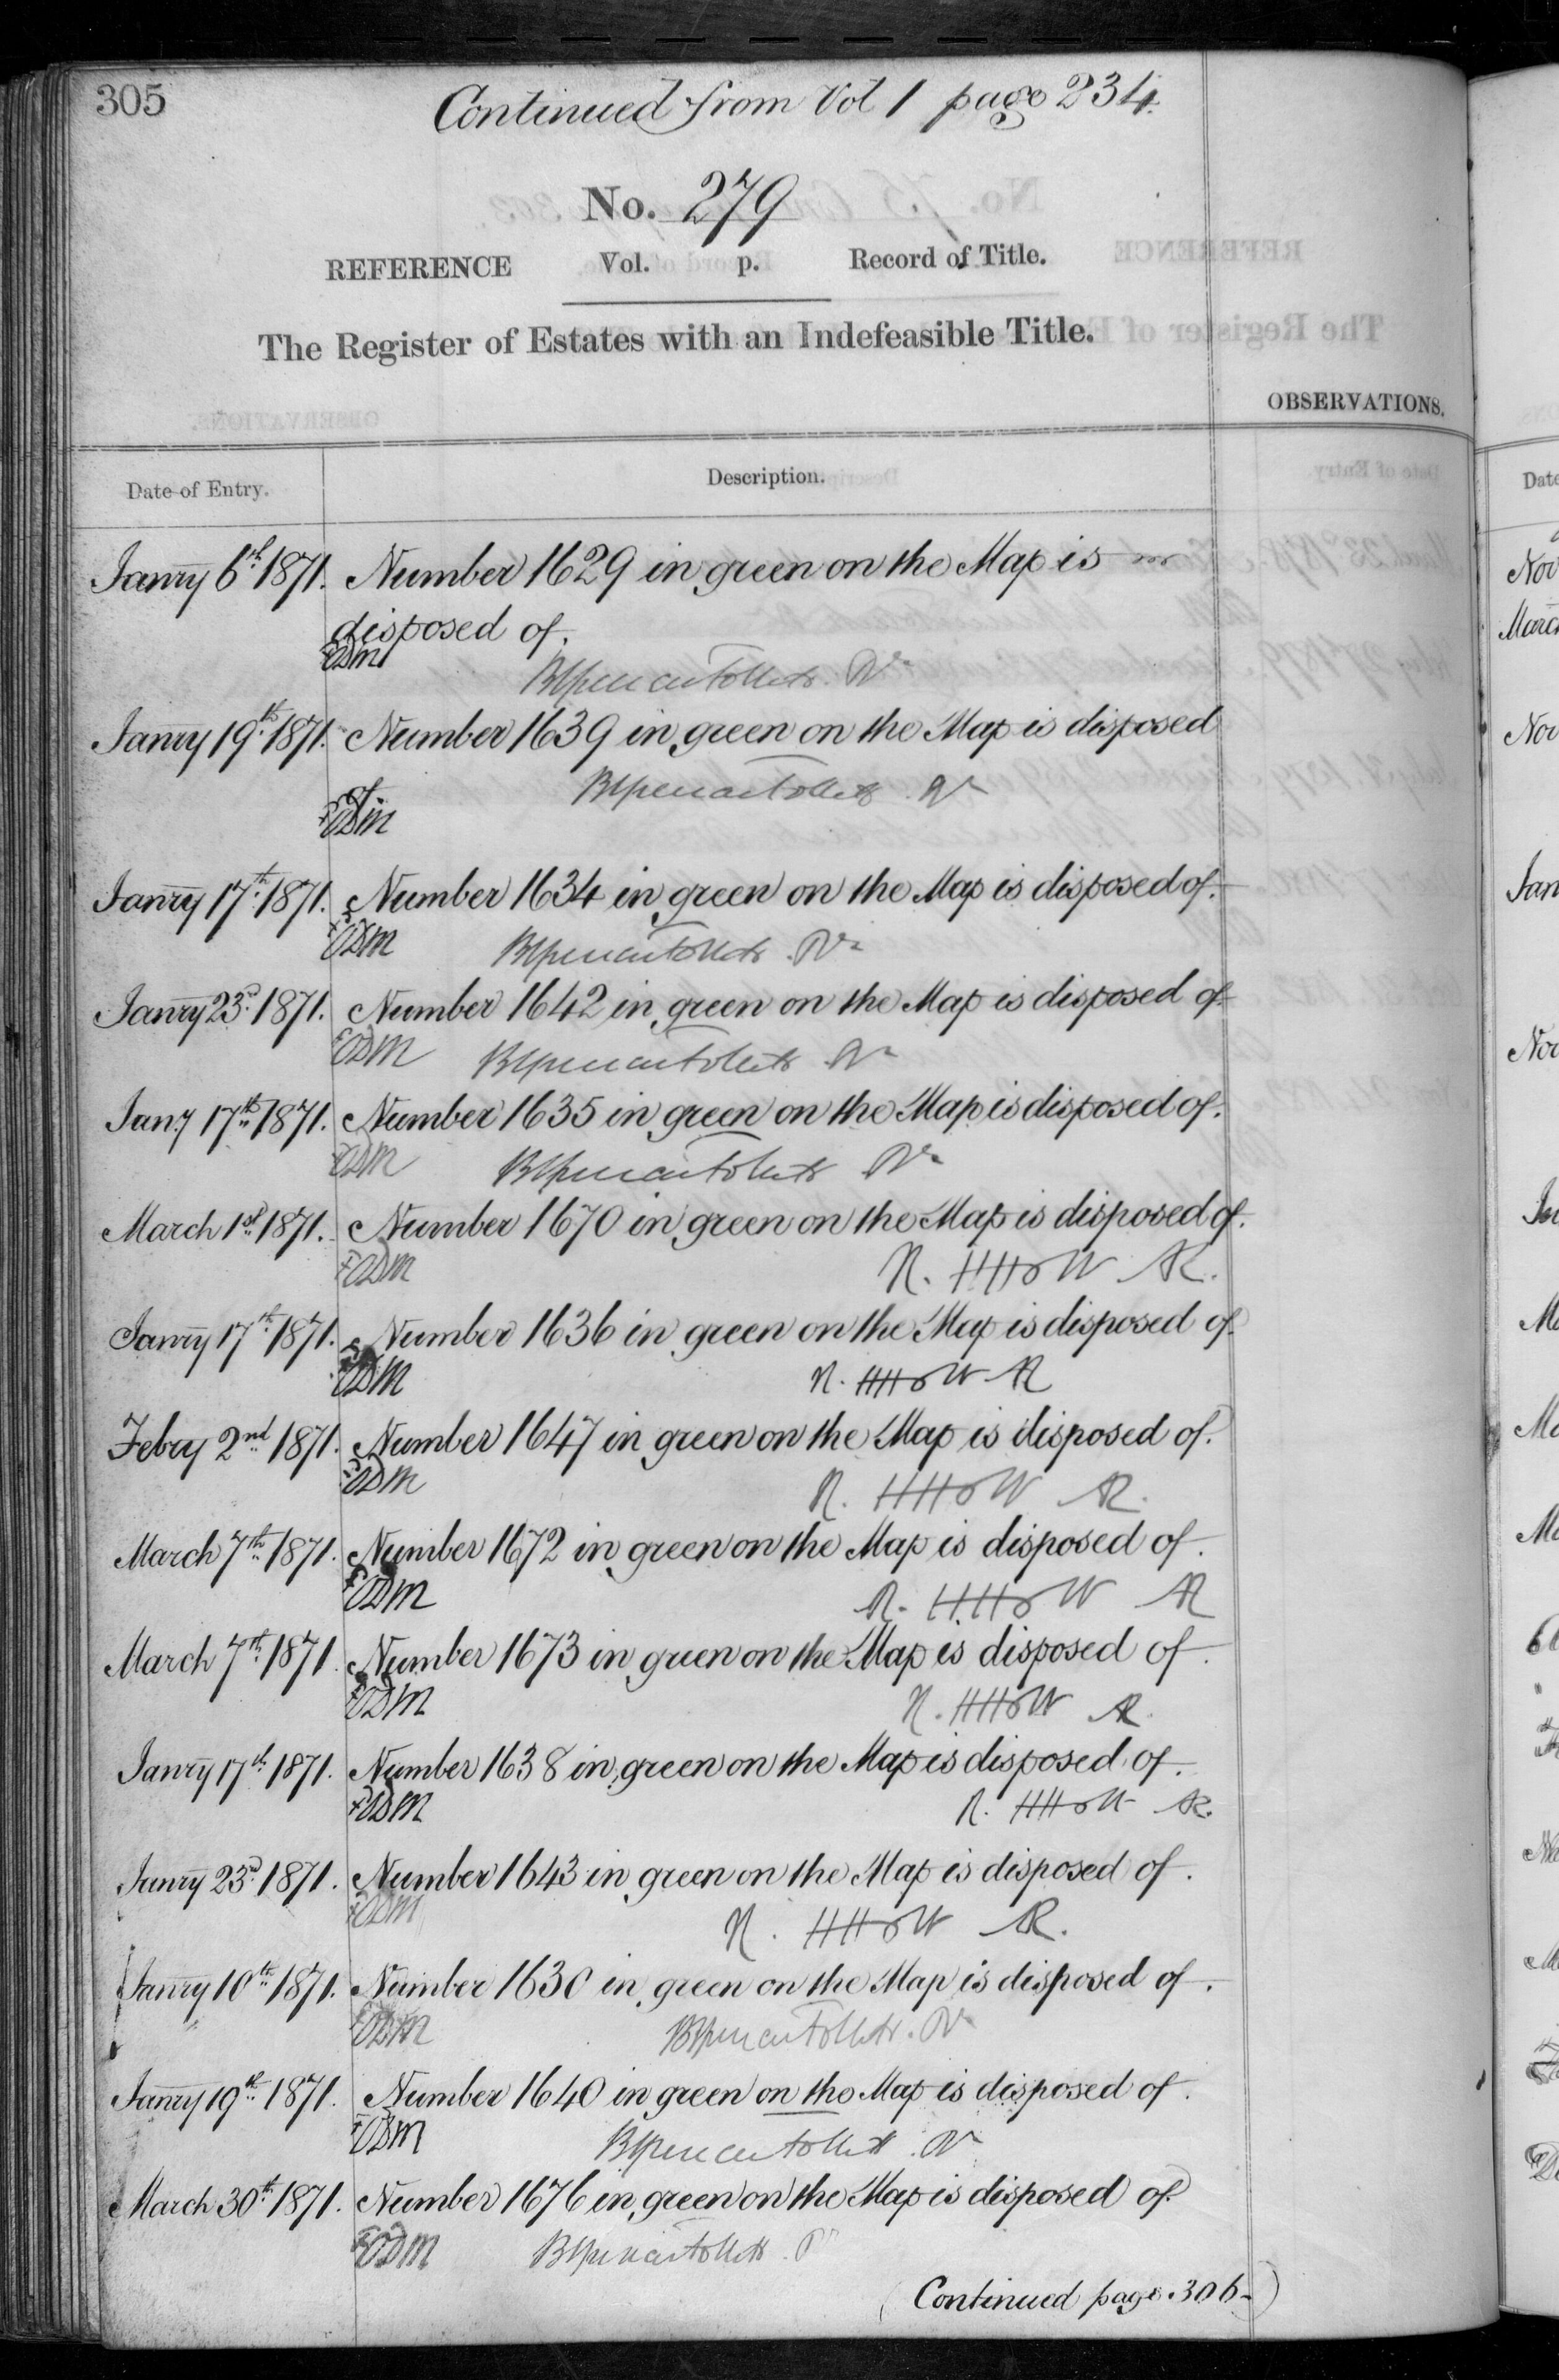 305
Continued from Vol 1 page 234.
No. 279
REFERENCE Vol. p. Record of Title.
The Register of Estates with an Indefeasible Title.
OBSERVATIONS.
Date of Entry. Description.
Janry 6th 1871. Number 1629 in green on the Map is
disposed of.
EDM
Janry 19th 1871. Number 1639 in green on the Map is disposed
of.
EDM
Janry 17th 1871. Number 1634 in green on the Map is disposed of.
EDM
Janry 23rd 1871. Number 1642 in green on the Map is disposed of.
EDM
Jany 17th 1871. Number 1635 in green on the Map is disposed of.
EDM
March 1st 1871. Number 1670 in green on the Map is disposed of.
EDM
Janry 17th 1871. Number 1636 in green on the Map is disposed of.
EDM
Febry 2nd 1871. Number 1647 in green on the Map is disposed of.
EDM
March 7th 1871. Number 1672 in green on the Map is disposed of.
EDM
March 7th 1871 Number 1673 in green on the Map is disposed of.
EDM
Janry 17th 1871. Number 1638 in green on the Map is disposed of.
EDM
Janry 23rd 1871. Number 1643 in green on the Map is disposed of.
EDM
Janry 10th 1871. Number 1630 in green on the Map is disposed of.
EDM
Janry 19th 1871. Number 1640 in green on the Map is disposed of.
EDM
March 30th 1871. Number 1676 in green on the Map is disposed of.
EDM
(Continued page 306-)